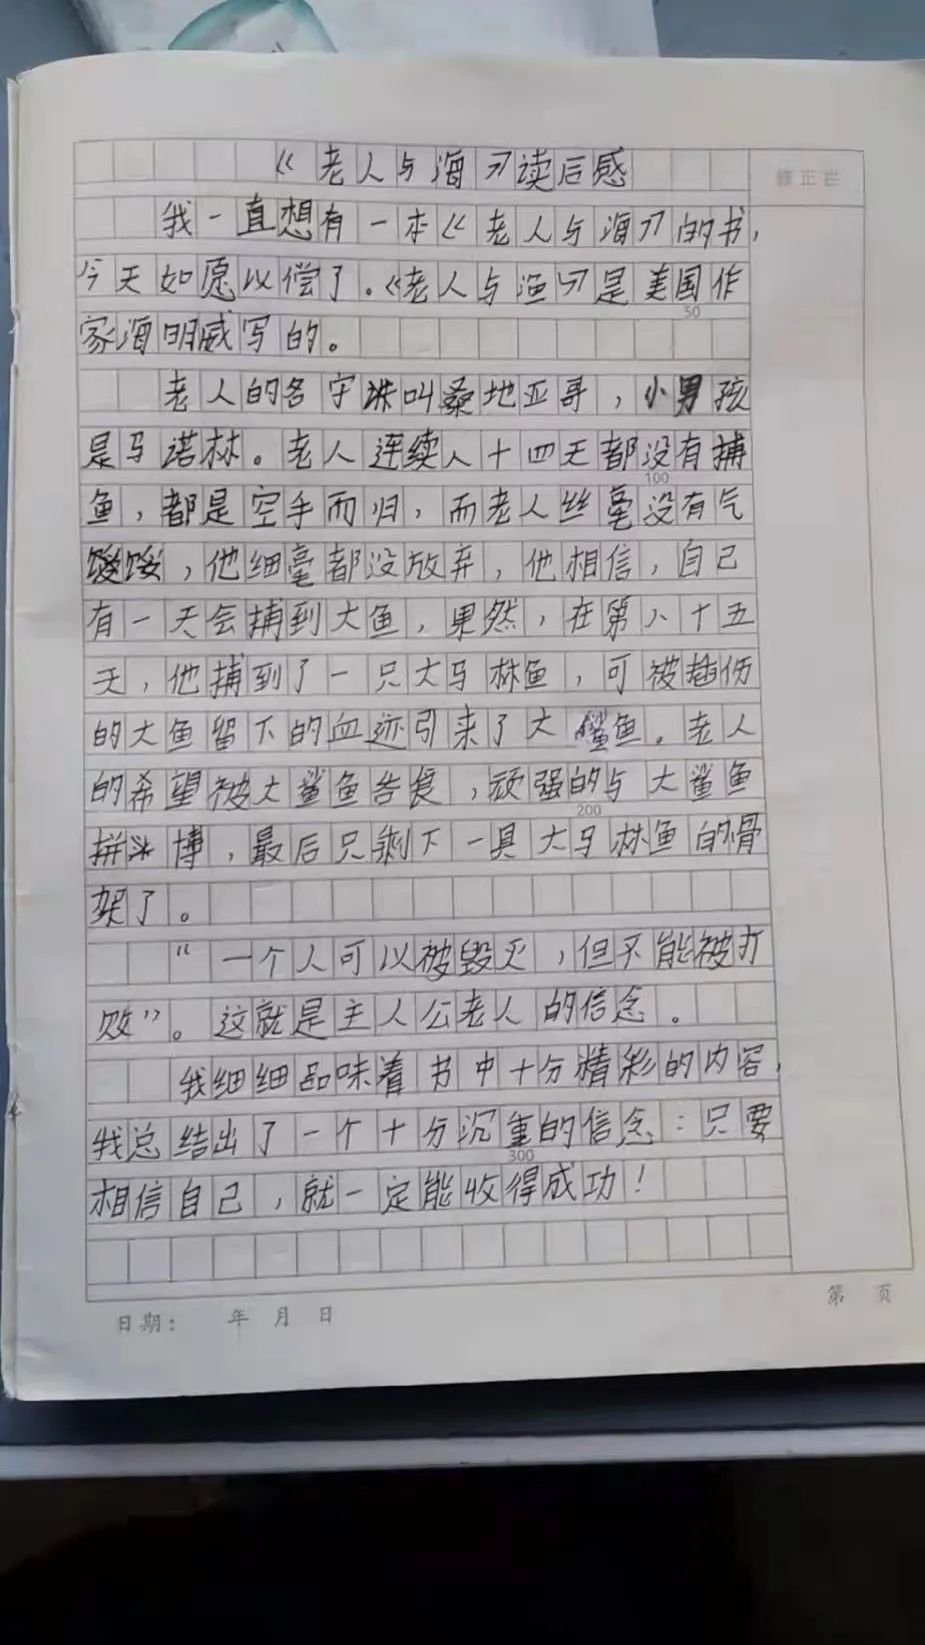 《老人与海》读后感
修正栏
我一直想有一本《老人与海》的书，
今天如愿以偿了。《老人与渔》是美国作
50
家海明威写的。
老人的名字叫桑地亚哥，小男孩
是马诺林。老人连续八十四天都没有捕
100
鱼，都是空手而归，而老人丝毫没有气
馁，他细毫都没放弃，他相信，自己
有一天会捕到大鱼，果然，在第八十五
天，他捕到了一只大马林鱼，可被插伤
的大鱼留下的血迹引来了大鲨鱼。老人
的希望被大鲨鱼吞食，顽强的与大鲨鱼
200
拼博，最后只剩下一具大马林鱼的骨
架了。
“一个人可以被毁灭，但不能被打
败”。这就是主人公老人的信念。
我细细品味着书中十分精彩的内容，
我总结出了一个十分沉重的信念：只要
300
相信自己，就一定能收得成功！
日期： 年 月 日
第 页